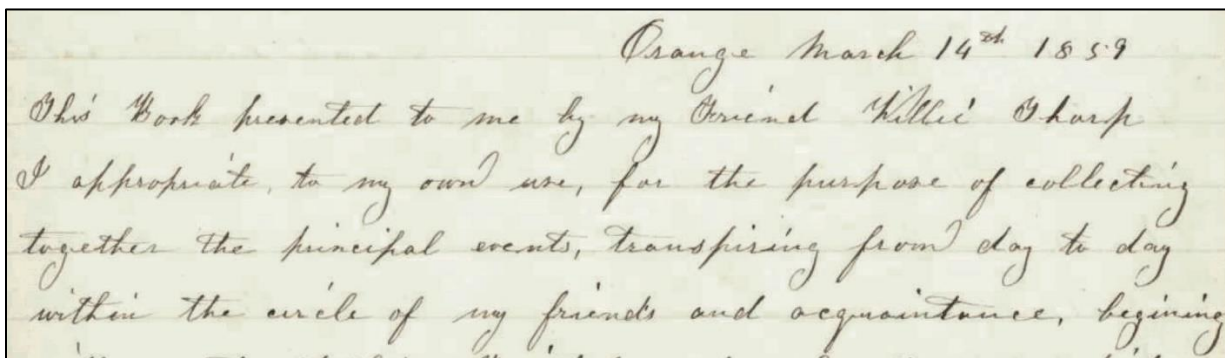 Orange March 14th 1859
This Book presented to me by my Friend Willie Tharp
I appropriate, to my own use, for the purpose of collecting
together the principal events, transpiring from day to day
within the circle of my friends and acquaintance, begining